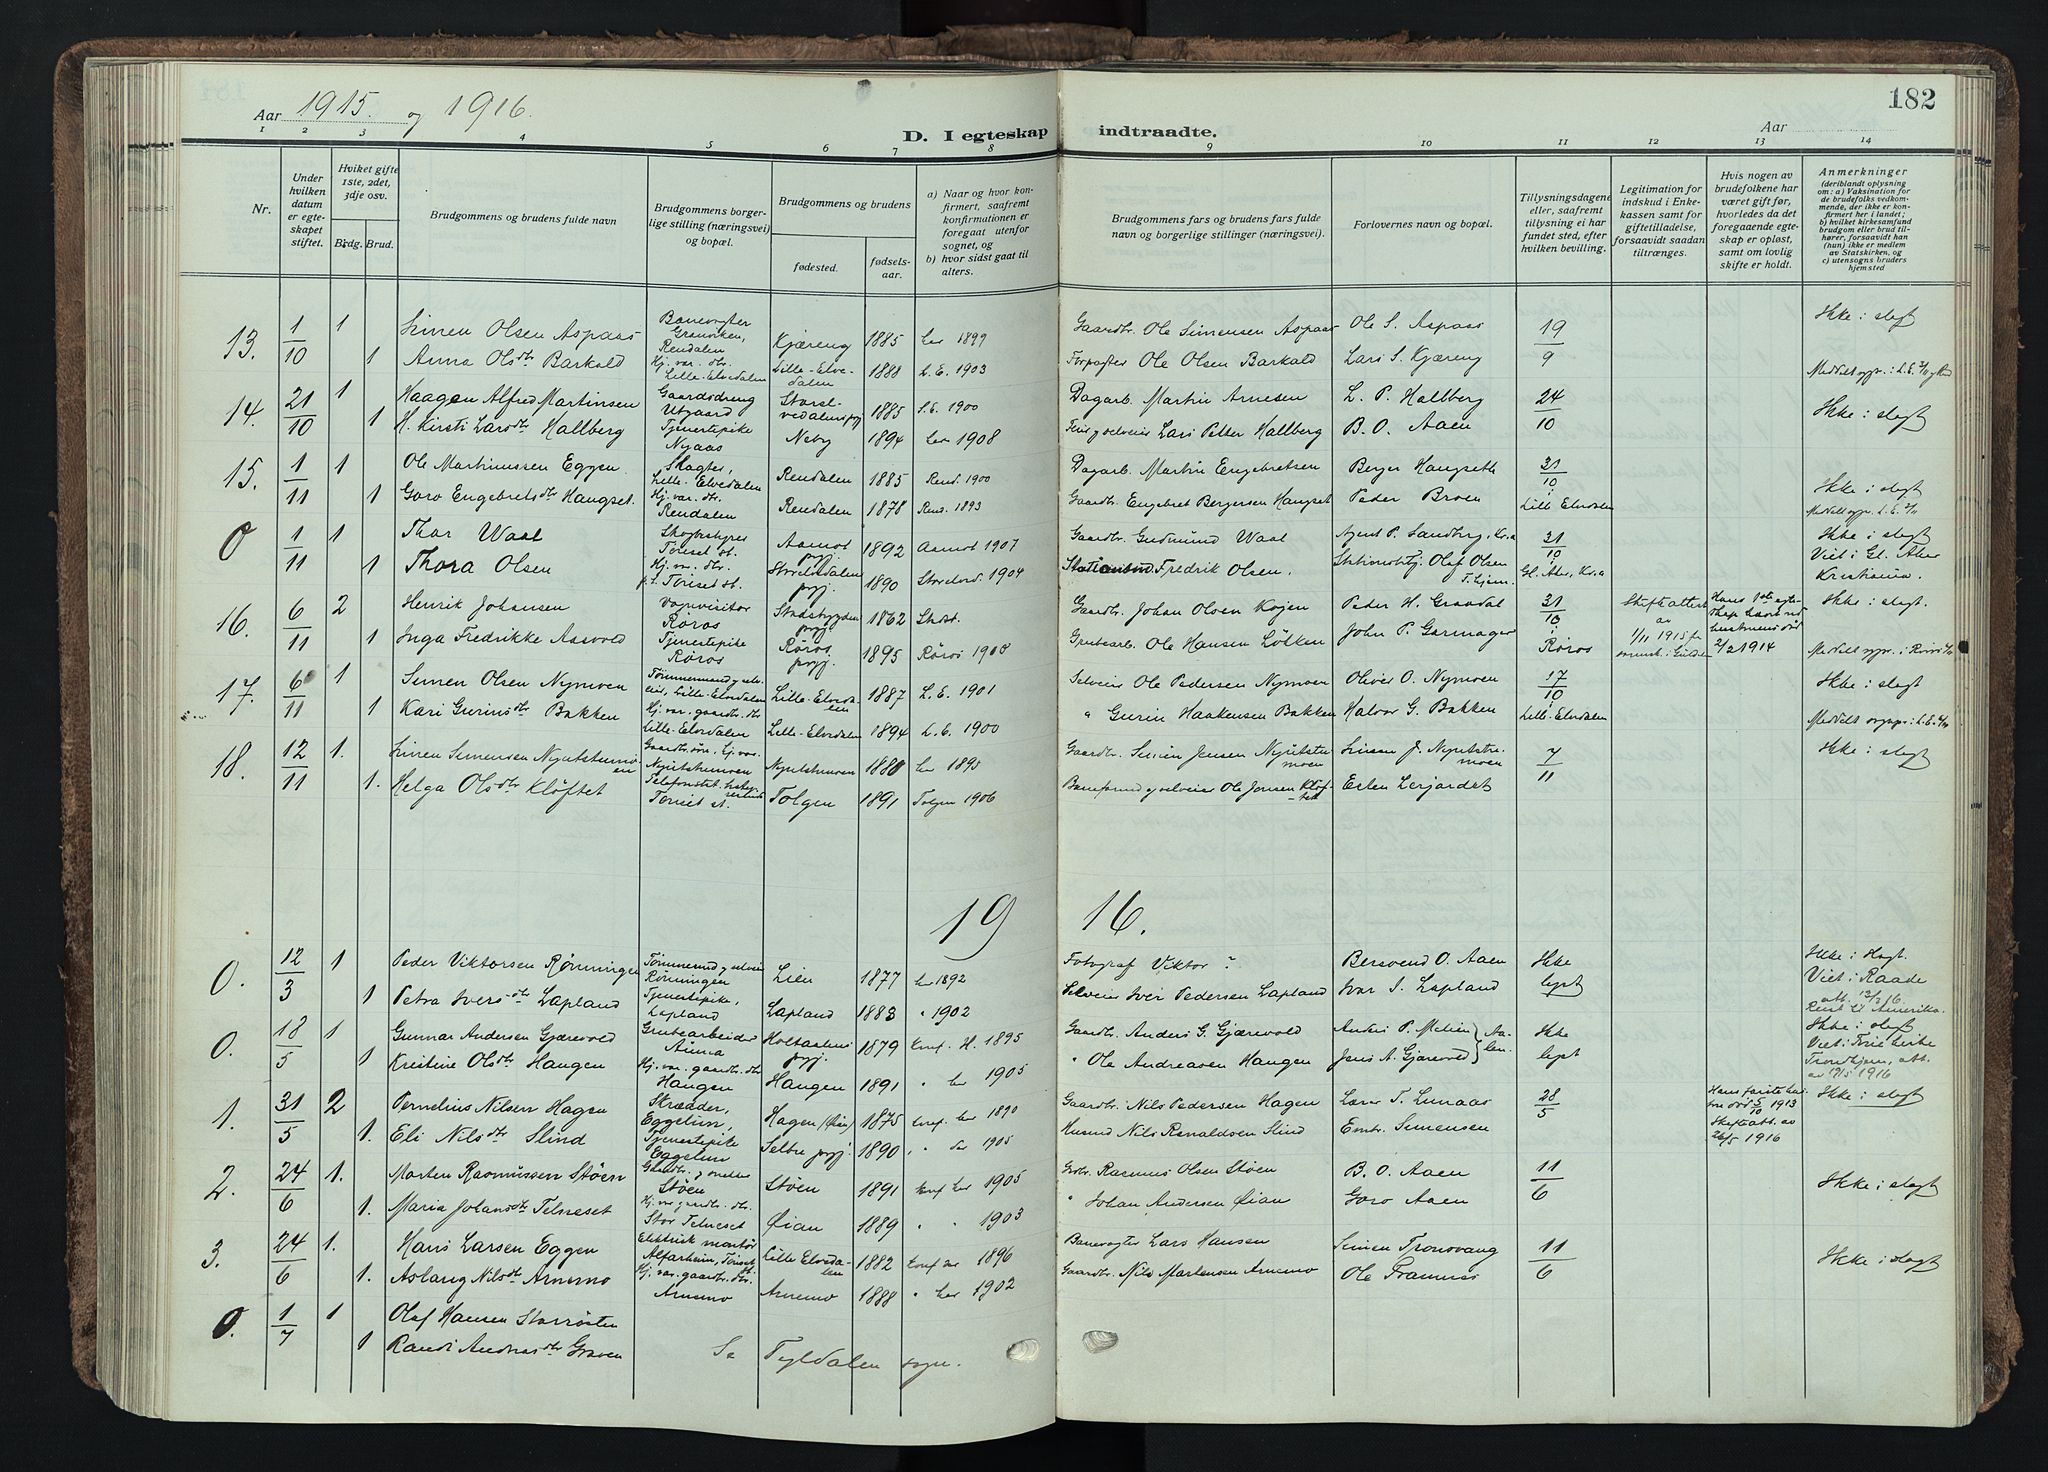 182
Aar 1915 og 1916.
D. I egteskap indtraadte.
Aar
1 2 3 4 5 6 7 8 9 10 11 12 13 14
Nr.
Under hvilken datum er egteskapet stiftet.
Hviket gifte 1ste, 2det, 3dje osv.
Brdg. Brud.
Brudgommens og brudens fulde navn
Brudgommens borgerlige stilling (næringsvei) og bopæl.
Brudgommens og brudens
fødested.
fødselsaar.
a) Naar og hvor konfirmert, saafremt konfirmationen er foregaat utenfor sognet, og
b) hvor sidst gaat til alters.
Brudgommens fars og brudens fars fulde navn og borgerlige stillinger (næringsvei).
Forlovernes navn og bopæl.
Tillysningsdagene eller, saafremt tillysning ei har fundet sted, efter hvilken bevilling.
Legitimation for indskud i Enkekassen samt for giftetilladelse, forsaavidt saadan tiltrænges.
Hvis nogen av brudefolkene har været gift før, hvorledes da det foregaaende egteskap er opløst, samt om lovlig skifte er holdt.
Anmerkninger
(deriblandt oplysning om: a) Vaksination for de brudefolks vedkommende, der ikke er konfirmert her i landet; b) hvilket kirkesamfund brudgom eller brud tilhører, forsaavidt han (hun) ikke er medlem av Statskirken, og c) utensogns bruders hjemsted
13. 1/10 1 Simen Olsen Aspaas Banevogter Granviken, Rendalen Kjæreng 1885 her 1899 Gaardbr. Ole Simensen Aspaas Ole S. Aspaas 19/9 Ikke i slegt
1 Anna Olsdtr Barkald Hj. var. dtr. Lille-Elvedalen Lille-Elvedalen 1888 L. E. 1903 Forpagter Ole Olsen Barkald Lars S. Kjæreng
14. 21/10 1 Haagen Alfred Martinsen Gaardsdreng Utgaard 1885 S. E. 1900 Dagarb. Martin Arnesen L. P. Hallberg 24/10 Ikke i slegt
1 H. Kirsti Larsdtr Hallberg Tjenestepike Nyaas Neby 1894 her 1908 Lars Petter Hallberg B. O. Aaen
15. 1/11 1 Ole Martinussen Eggen Lille-Elvedalen Rendalen 1885 Rend. 1900 Dagarb. Martin Engebretsen Berger Haugseth 31/10 i Lille Elvedalen Ikke i slegt
1 Goro Engebretsdtr Haugset. Hj. var. dtr. Rendalen Rendalen 1878 Rend. 1893 Gaardbr. Engebret Bergersen Haugset Peder Broen
0 1/11 1 Thor Waal Tønset st. Aamot pgj. 1892 Aamot 1907 Gaardbr. Gudmund Waal Agent P. Sandberg, Kr.a 31/10 Gl. Aker, Kr.a Ikke i slegt
1 Thora Olsen Hj. var. dtr. p. S. Tønset st. Storelvedalen pgj. 1890 Storelvd. 1904 Fredrik Olsen. Olaf Olsen T.hjem Viet i Gl. Aker Kristiania.
16. 6/11 2 Henrik Johansen Vognvisitør Røros Stadsbygden pgj. 1862 Stadsb. Gaardbr. Johan Olsen Kojen Peder H. Graadal 31/10 i Røros Skifteattest av 1/11 1915 Hans 1ste egteskap 2/2 1914 Ikke i slegt.
1 Inga Fredrikke Aasvold Tjenestepike Røros Røros pgj. 1895 Røros 1908 Grubearb. Ole Hansen Løkken John P. Garmager
17. 6/11 1 Simen Olsen Nymoen Lille-Elvedalen Lille-Elvedalen 1887 L. E. 1901 Selveier Ole Pedersen Nymoen Oliver O. Nymoen 17/10 Lille-Elvdalen Ikke i slegt
1 Kari Gurinsdtr Bakken Hj. var. gaardbr. dtr Lille-Elvedalen Lille-Elvedalen 1894 L. E. 1900 " Gurin Haakensen Bakken Halvor G. Bakken
18. 12/11 1. Simen Simensen Nyutstumoen Nyutstumoen Nyutstumoen 1880 her 1895 Gaardbr. Simen Jensen Nyutstumoen Simen J. Nyutstumoen 7/11 Ikke i slegt
1. Helga Olsdtr Kløftet Tønset st. Tolgen 1891 Tolgen 1906 Ole Jonsen Kløftet Esten Lerjordet
1916.
0. 12/3 1 Peder Viktorsen Rønningen Rønningen Lien 1877 her 1892 Fotograf Viktor ? Bersvend O. Aaen Ikke lyst Ikke i slegt.
1 Petra Iversdtr Lapland Tjenestepike, Lapland Lapland 1883 " 1902 Selveier Iver Pedersen Lapland Ivar I. Lapland Viet i Raade att. 12/3 16. Reist til Amerika.
0. 18/5 1 Gunnar Andersen Gjærevold Grubearbeider Holtaalens pgj. 1879 Konf. H. 1895 Gaardbr. Anders G. Gjærevold Anders P. Ikke lyst Ikke i slegt
1 Kristine Olsdtr Haugen Hj. var. gaardbr. dtr Haugen Haugen 1891 " her 1905 " Ole Andreasen Haugen Jens A. Gjærevold Aalen. Trondhjem, att. av 19/5 1916
1. 31/5 2 Pernelius Nilsen Hagen Skrædder, Eggelun, Hagen 1875 konf. her 1890 Gaardbr. Nils Pedersen Hagen Lars T. Lunaas 28/5 Hans første hustru død 5/10 1913 Skifteatt. av 26/5 1916 Ikke i slegt
1. Eli Nilsdtr Slind Tjenestepike Eggelun Selbu pgj. 1890 " 1905 Husmd Nils Ronaldsen Slind Embr. Simensen
2. 24/6 1. Morten Rasmussen Støen Støen Støen 1891 konf. her 1905 Gbr. Rasmus Olsen Støen B. O. Aaen 11/6 Ikke i slegt
1. Maria Johansdtr Telneset Stor Telneset Øian 1889 " " 1903 " Johan Andersen Øian Goro Aaen
3. 24/6 1. Hans Larsen Eggen Elektrisk montør Alfarheim, Tønset st. Lille Elvedalen 1882 konf. her 1896 Banevogter Lars Hansen Simen Tronsvang 11/6 Ikke i slegt
1. Aslaug Nilsdtr Arnemo Hj. var. gaardbr. dtr. Arnemo Arnemo 1888 " her 1902 Gaardbr. Nils Mortensen Arnemo Ole Framnes
0. 1/7 1 Olaf Hansen Storrøsten
1 Randi Andreasdtr Graven Se Tyldalen sogn.